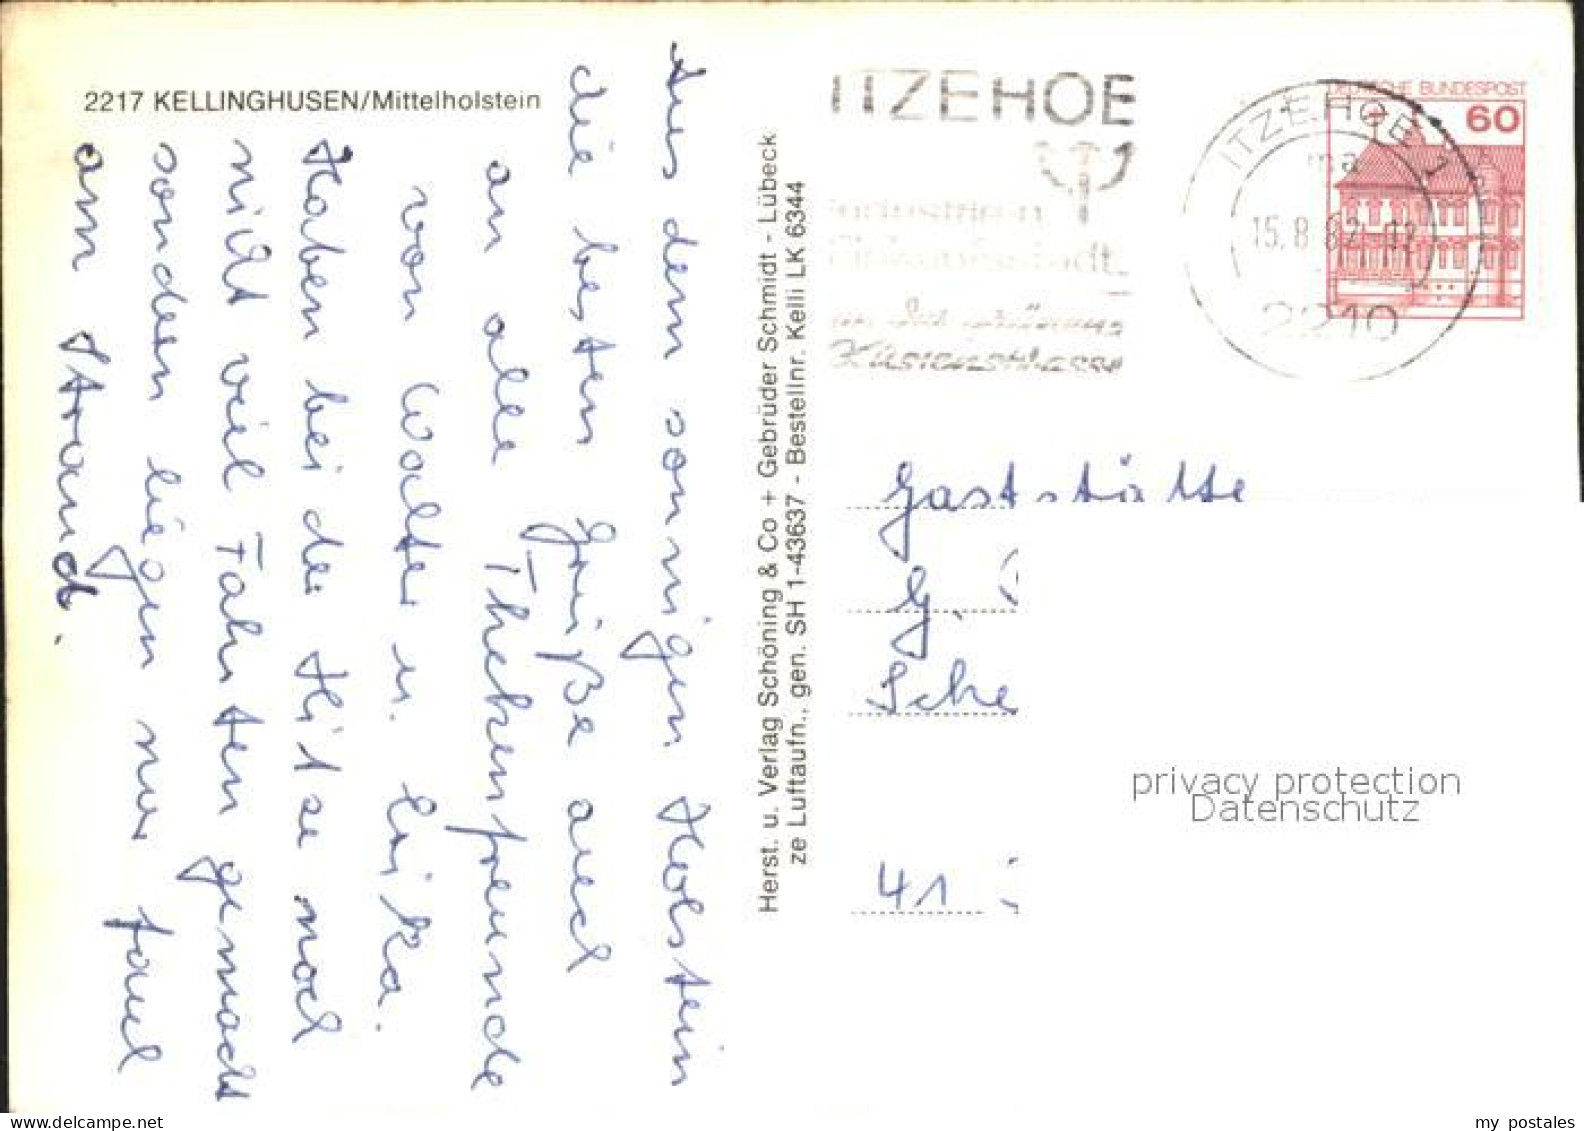 2217 KELLINGHUSEN/Mittelholstein
Aus dem sonnigen Holstein
die besten Grüße auch
an alle Thekenfreunde
von Walter u.
Haben bei der Hitze noch
nicht viel Fahrten gemacht
sondern liegen nur faul
am Strand.
Herst. u. Verlag Schöning & Co + Gebrüder Schmidt - Lübeck
ze Luftaufn., gen. SH 1-43637 - Bestellnr. Kelli LK 6344
ITZEHOE
Einkaufsstadt
an der grünen
Küstenstrasse
ITZEHOE 1
ma
15.8.82-12
2210
DEUTSCHE BUNDESPOST
60
Gaststätte
G.
Sche
41
privacy protection
Datenschutz
www.delcampe.net
my_postales